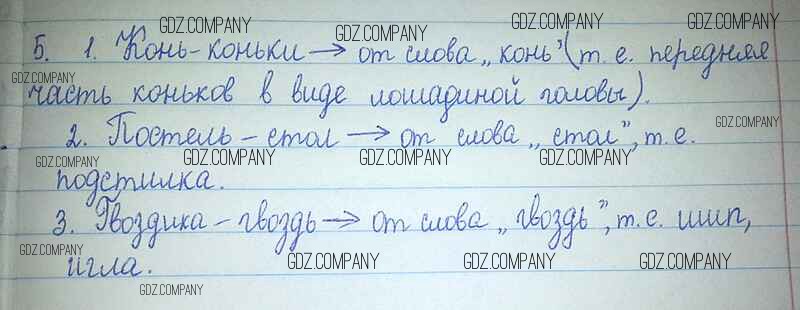 GDZ.COMPANY GDZ.COMPANY GDZ.COMPANY GDZ.COMPANY
5. 1. Конь-коньки → от слова „конь" (т. е. передняя
GDZ.COMPANY
часть коньков в виде лошадиной головы).
GDZ.COMPANY GDZ.COMPANY GDZ.COMPANY GDZ.COMPANY
2. Постель - стол → от слова „стол", т.е.
GDZ.COMPANY GDZ.COMPANY GDZ.COMPANY GDZ.COMPANY
подстилка.
3. Гвоздика - гвоздь → от слова „гвоздь", т.е. шип,
GDZ.COMPANY
игла.
GDZ.COMPANY GDZ.COMPANY GDZ.COMPANY
GDZ.COMPANY